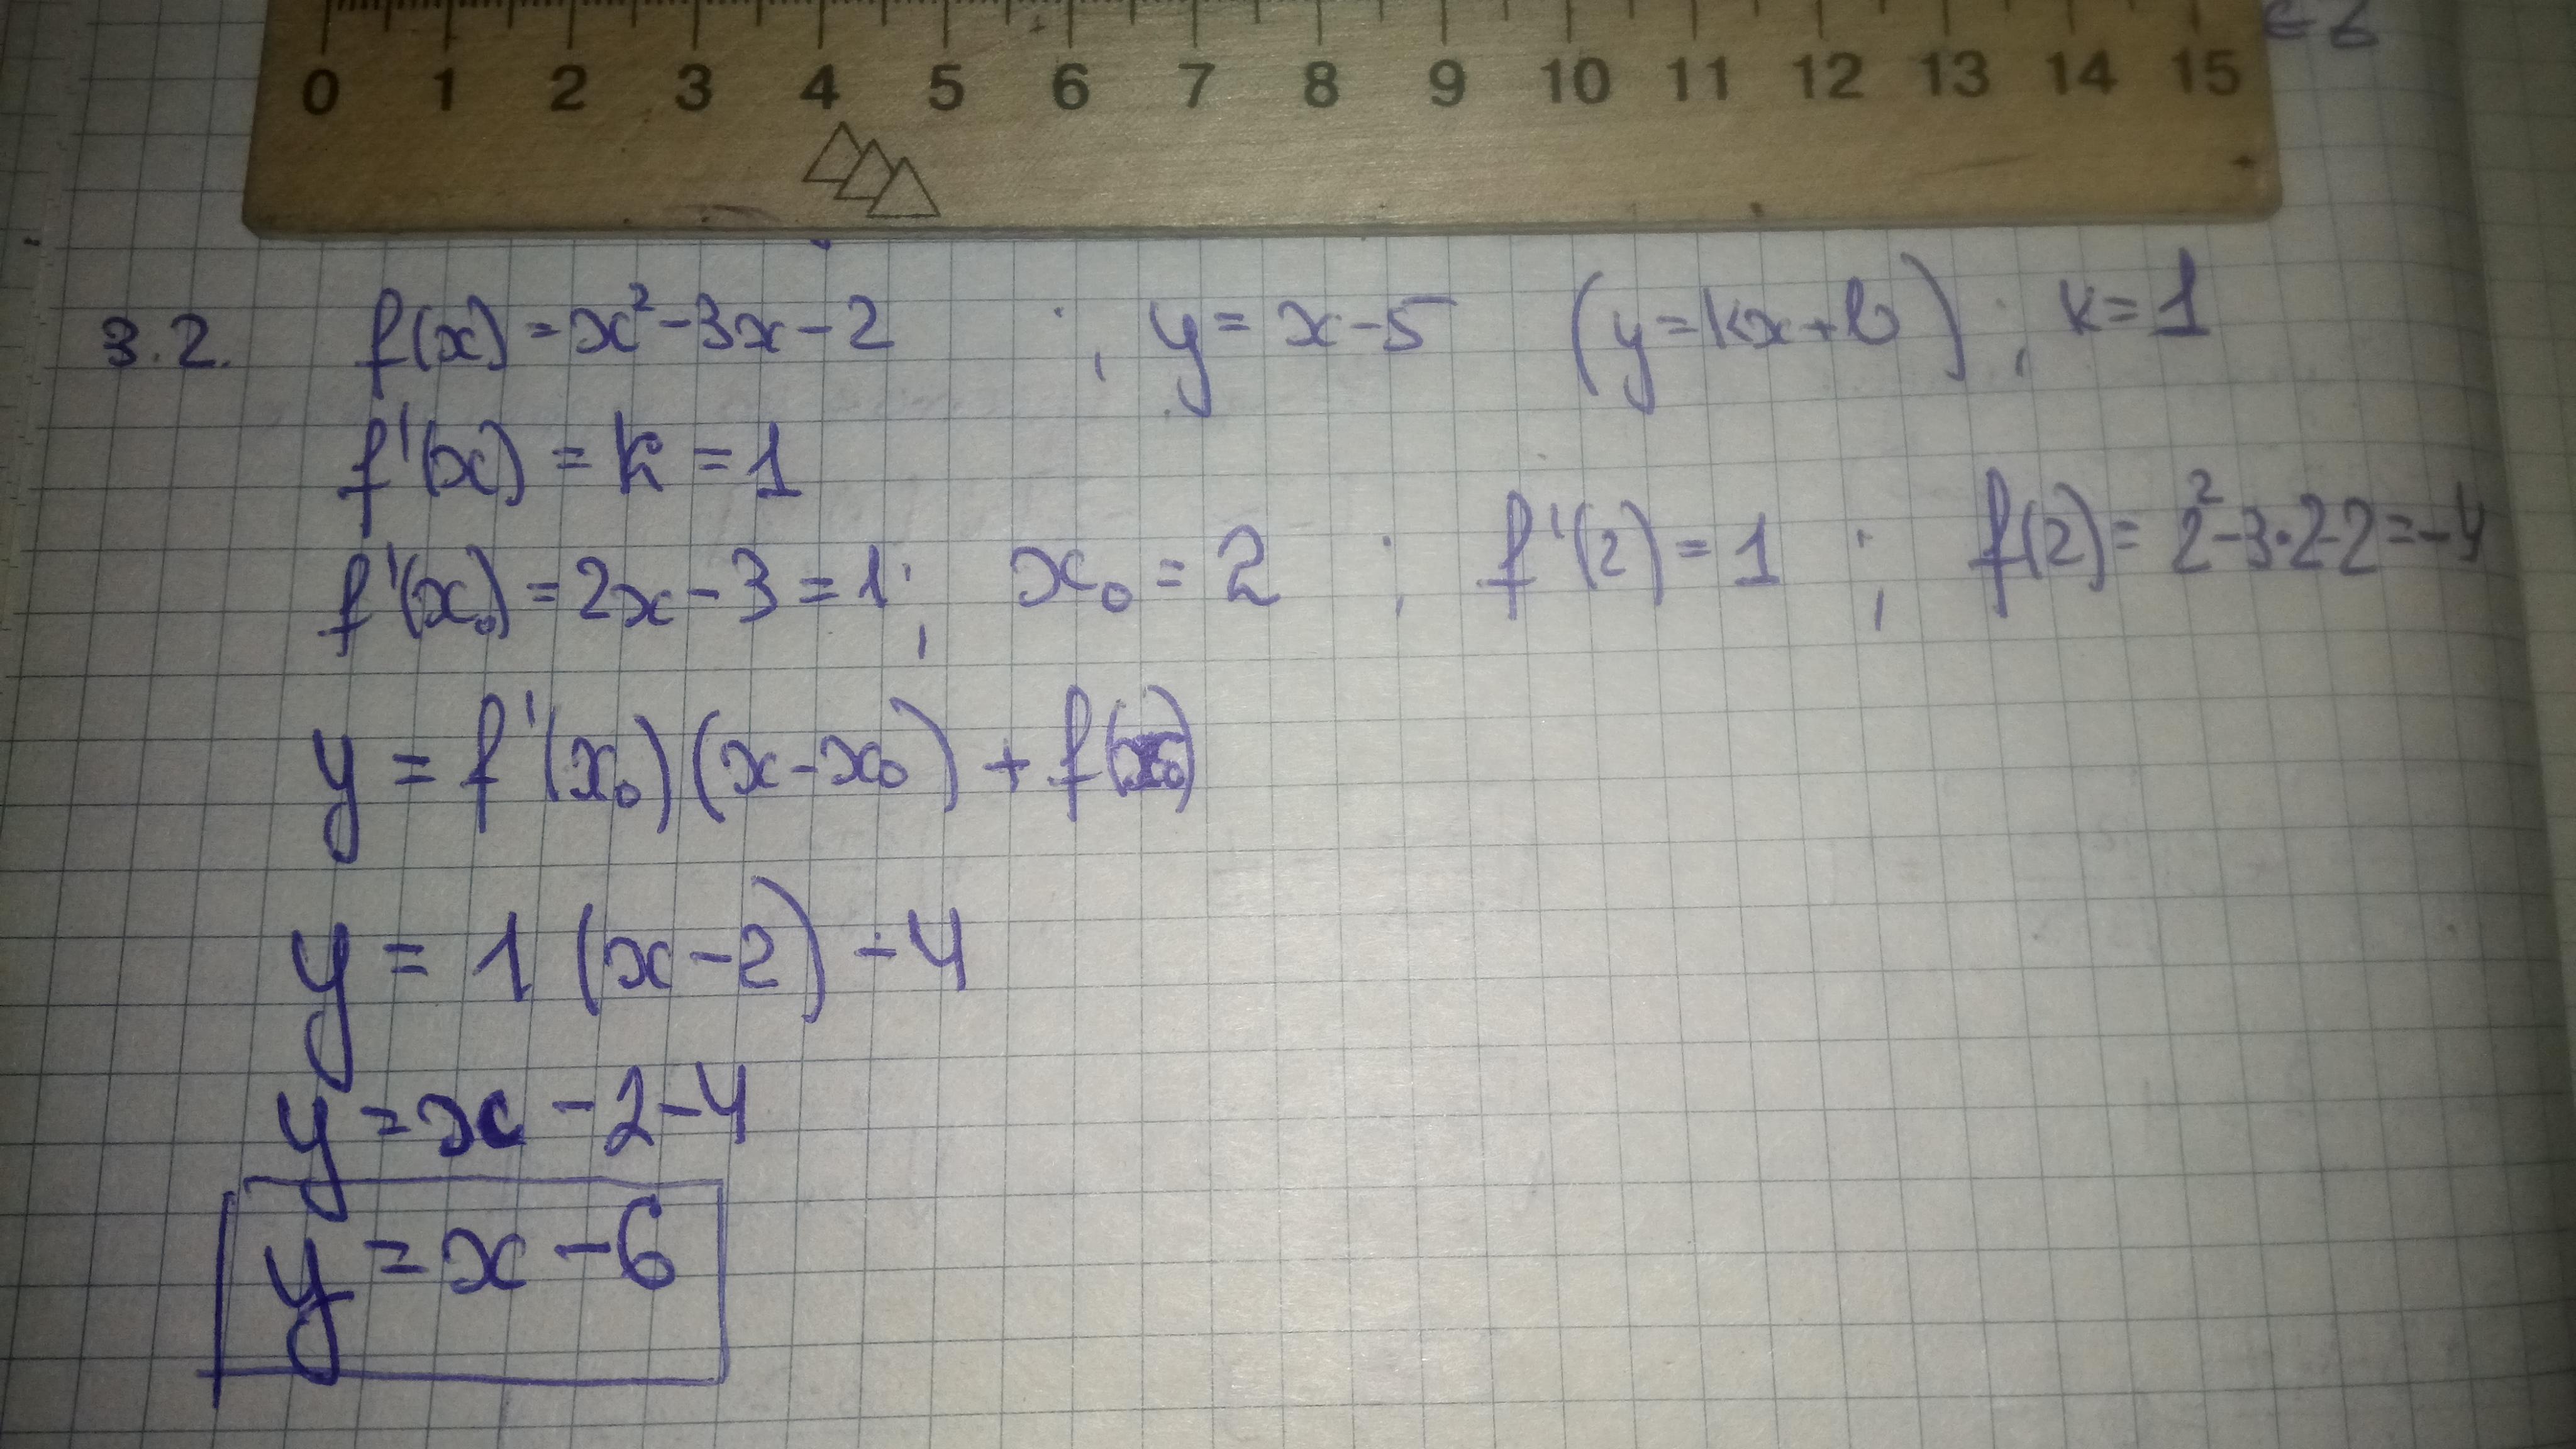 0 1 2 3 4 5 6 7 8 9 10 11 12 13 14 15
3.2. f(x) = x² - 3x - 2 ; y = x - 5 (y = kx + b) ; k = 1
f'(x) = k = 1
f'(x₀) = 2x - 3 = 1 ; x₀ = 2 ; f'(2) = 1 ; f(2) = 2² - 3·2 - 2 = -4
y = f'(x₀)(x - x₀) + f(x₀)
y = 1 (x - 2) - 4
y = x - 2 - 4
y = x - 6